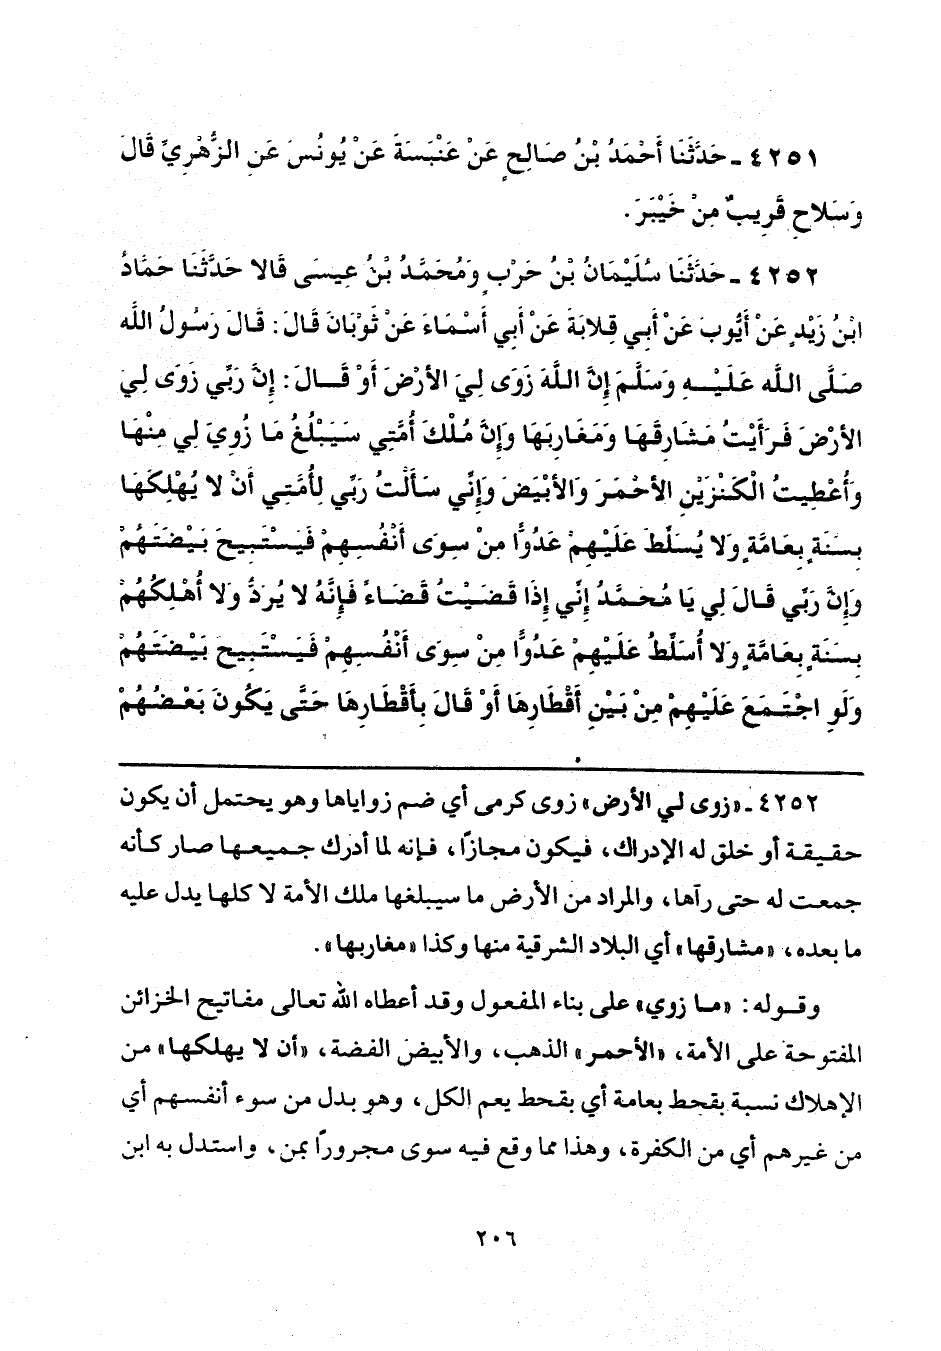 ٤٢٥١ ـ حَدَّثَنَا أَحْمَدُ بْنُ صَالِحٍ عَنْ عَنْبَسَةَ عَنْ يُونُسَ عَنِ الزُّهْرِيِّ قَالَ
وَسَلَاحِ قَرِيبٌ مِنْ خَيْبَرَ.
٤٢٥٢ ـ حَدَّثَنَا سُلَيْمَانُ بْنُ حَرْبٍ وَمُحَمَّدُ بْنُ عِيسَى قَالَا حَدَّثَنَا حَمَّادُ
ابْنُ زَيْدٍ عَنْ أَيُّوبَ عَنْ أَبِي قِلَابَةَ عَنْ أَبِي أَسْمَاءَ عَنْ ثَوْبَانَ قَالَ: قَالَ رَسُولُ اللَّه
صَلَّى اللَّه عَلَيْهِ وَسَلَّمَ إِنَّ اللَّهَ زَوَى لِيَ الأَرْضَ أَوْ قَالَ: إِنَّ رَبِّي زَوَى لِيَ
الأَرْضَ فَرَأَيْتُ مَشَارِقَهَا وَمَغَارِبَهَا وَإِنَّ مُلْكَ أُمَّتِي سَيَبْلُغُ مَا زُوِيَ لِي مِنْهَا
وَأُعْطِيتُ الْكَنْزَيْنِ الأَحْمَرَ وَالأَبْيَضَ وَإِنِّي سَأَلْتُ رَبِّي لِأُمَّتِي أَنْ لَا يُهْلِكَهَا
بِسَنَةٍ بِعَامَّةٍ وَلَا يُسَلِّطَ عَلَيْهِمْ عَدُوًّا مِنْ سِوَى أَنْفُسِهِمْ فَيَسْتَبِيحَ بَيْضَتَهُمْ
وَإِنَّ رَبِّي قَالَ لِي يَا مُحَمَّدُ إِنِّي إِذَا قَضَيْتُ قَضَاءً فَإِنَّهُ لَا يُرَدُّ وَلَا أُهْلِكُهُمْ
بِسَنَةٍ بِعَامَّةٍ وَلَا أُسَلِّطُ عَلَيْهِمْ عَدُوًّا مِنْ سِوَى أَنْفُسِهِمْ فَيَسْتَبِيحَ بَيْضَتَهُمْ
وَلَوِ اجْتَمَعَ عَلَيْهِمْ مِنْ بَيْنِ أَقْطَارِهَا أَوْ قَالَ بِأَقْطَارِهَا حَتَّى يَكُونَ بَعْضُهُمْ
٤٢٥٢ ـ «زوى لي الأرض» زوى كرمى أي ضم زواياها وهو يحتمل أن يكون
حقيقة أو خلق له الإدراك، فيكون مجازاً، فإنه لما أدرك جميعها صار كأنه
جمعت له حتى رآها، والمراد من الأرض ما سيبلغها ملك الأمة لا كلها يدل عليه
ما بعده، «مشارقها» أي البلاد الشرقية منها وكذا «مغاربها».
وقوله: «ما زوي» على بناء المفعول وقد أعطاه الله تعالى مفاتيح الخزائن
المفتوحة على الأمة، «الأحمر» الذهب، والأبيض الفضة، «أن لا يهلكها» من
الإهلاك نسبة بقحط بعامة أي بقحط يعم الكل، وهو بدل من سوء أنفسهم أي
من غيرهم أي من الكفرة، وهذا مما وقع فيه سوى مجروراً بمن، واستدل به ابن
٢٠٦